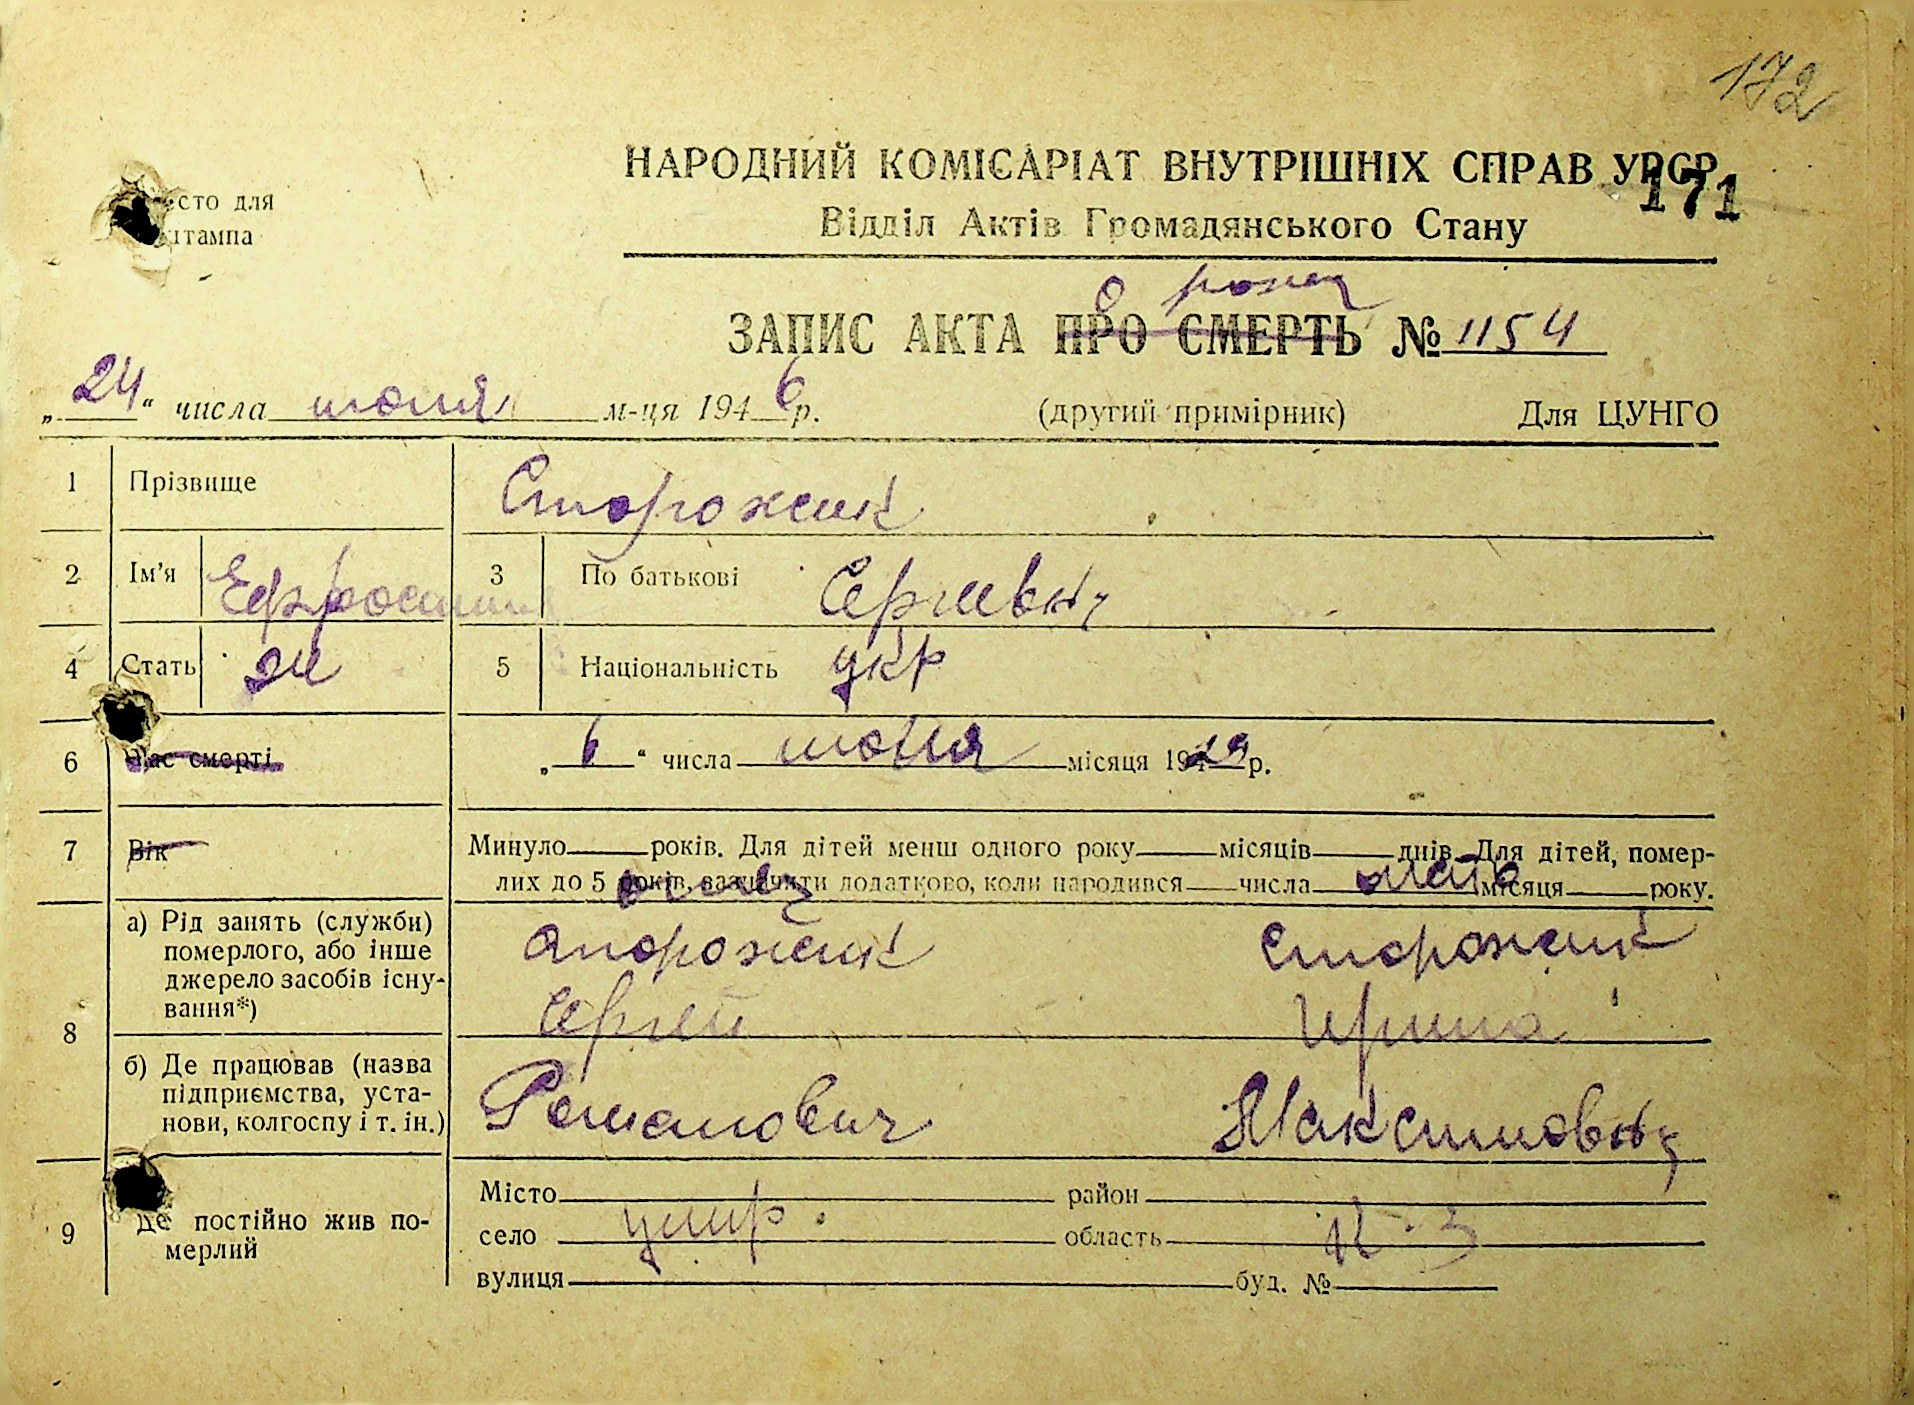 172
НАРОДНИЙ КОМІСАРІАТ ВНУТРІШНІХ СПРАВ УРСР
171
Відділ Актів Громадянського Стану
сто для
штампа
о рожд
ЗАПИС АКТА ПРО СМЕРТЬ № 1154
„24“ числа июня м-ця 1946 р. (другий примірник) Для ЦУНГО
1 Прізвище Сторожук
2 Ім'я Ефросиния 3 По батькові Сергиевна
4 Стать 5 Національність укр
6 Час смерті „6“ числа июня місяця 1929 р.
7 Вік Минуло ___ років. Для дітей менш одного року ___ місяців ___ днів. Для дітей, помер-
лих до 5 років, зазначити додатково, коли народився ___ числа ___ місяця ___ року.
отец мать
8 а) Рід занять (служби) померлого, або інше джерело засобів існу-вання*) Сторожук Сторожук
Сергей Ирина
б) Де працював (назва підприємства, уста-нови, колгоспу і т. ін.) Романович Максимовна
9 Де постійно жив по-мерлий
Місто ___ район ___
село ___ область ___
вулиця ___ буд. № ___